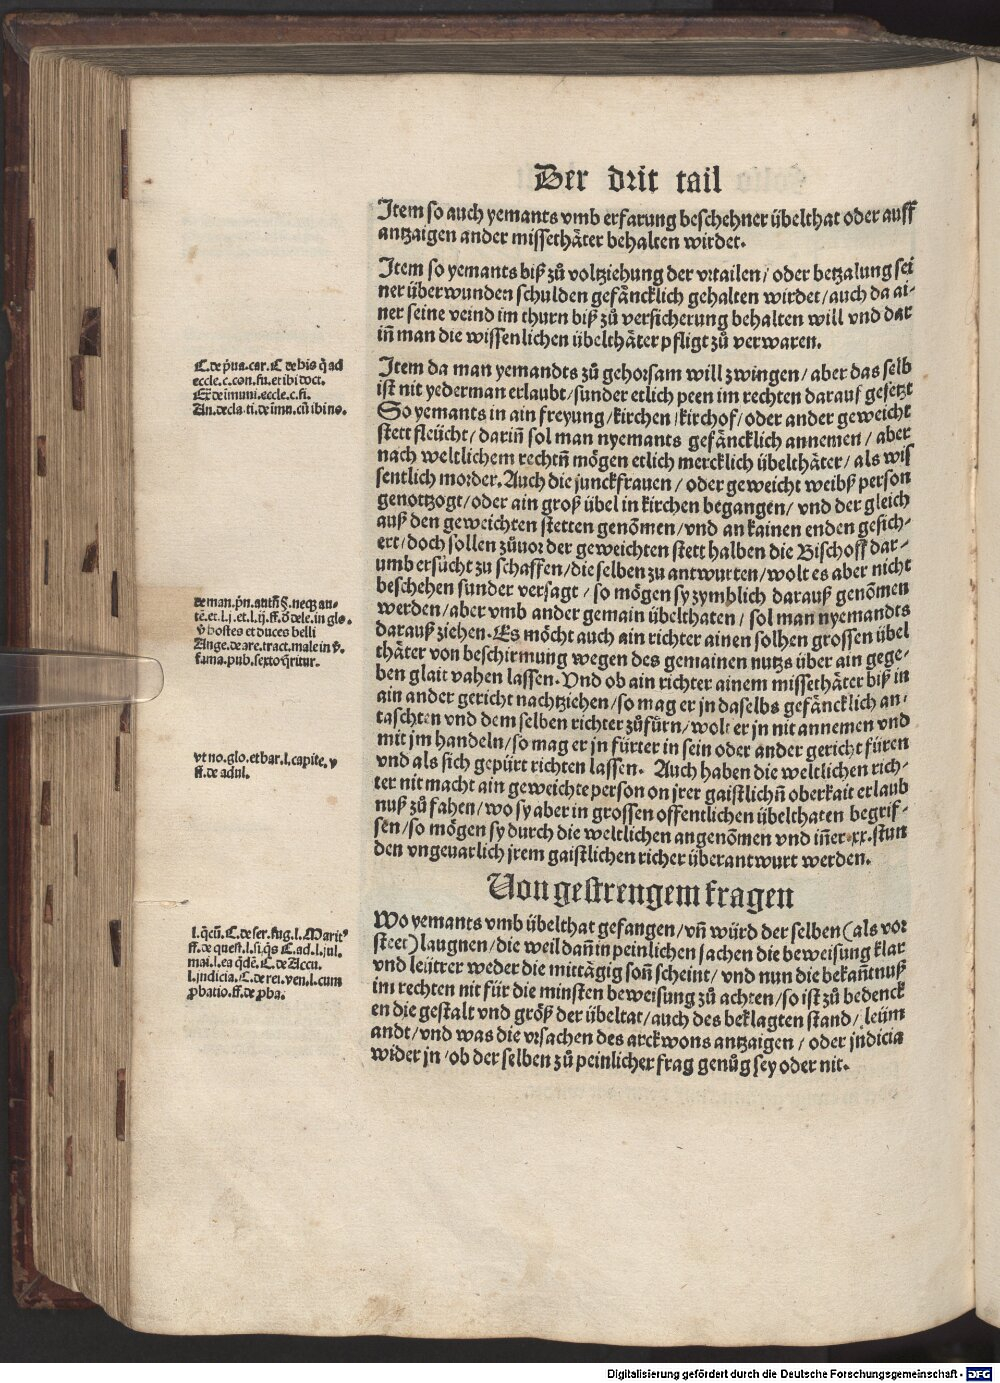 Der drit tail
Item so auch yemants vmb erfarung beschehner übelthat oder auff
antzaigen ander missethäter behalten wirdet.
Item so yemants biß zů voltziehung der vrtailen / oder betzalung sei
ner überwunden schulden gefäncklich gehalten wirdet / auch da ai-
ner seine veind im thurn biß zů versicherung behalten will vnd dar
iñ man die wissenlichen übelthäter pfligt zů verwaren.
Item da man yemandts zů gehorsam will zwingen / aber das selb
ist nit yederman erlaubt / sunder etlich peen im rechten darauf gesetzt
So yemants in ain freyung / kirchen / kirchof / oder ander geweicht
stett fleücht / dariñ sol man nyemants gefäncklich annemen / aber
nach weltlichem rechtñ mögen etlich mercklich übelthäter / als wis
sentlich morder. Auch die junckfrauen / oder geweicht weibß person
genottzogt / oder ain groß übel in kirchen begangen / vnd der gleich
auß den geweichten stetten genõmen / vnd an kainen enden gesich-
ert / doch sollen zůuor der geweichten stett halben die Bischoff dar-
umb ersücht zu schaffen / die selben zu antwurten / wolt es aber nicht
beschehen sunder versagt / so mögen sy zymblich darauß genõmen
werden / aber vmb ander gemain übelthaten / sol man nyemandts
darauß ziehen. Es möcht auch ain richter ainen solhen grossen übel
thäter von beschirmung wegen des gemainen nutzs über ain gege-
ben glait vahen lassen. Vnd ob ain richter ainem missethäter biß in
ain ander gericht nachtziehen / so mag er jn daselbs gefäncklich an-
taschten vnd dem selben richter zůfürn / wolt er jn nit annemen vnd
mit jm handeln / so mag er jn fürter in sein oder ander gericht füren
vnd als sich gepürt richten lassen. Auch haben die weltlichen rich-
ter nit macht ain geweichte person on jrer gaistlichñ oberkait erlaub
nuß zů fahen / wo sy aber in grossen offentlichen übelthaten begrif-
fen / so mögen sy durch die weltlichen angenõmen vnd iñer .xx. stun
den vngeuarlich jrem gaistlichen richer überantwurt werden.
Von gestrengem fragen
Wo yemants vmb übelthat gefangen / vñ würd der selben (als vor
steet) laugnen / die weil dañ in peinlichen sachen die beweisung klar
vnd leütrer weder die mittägig soñ scheint / vnd nun die bekañtnuß
im rechten nit für die minsten beweisung zů achten / so ist zů bedenck
en die gestalt vnd größ der übeltat / auch des beklagten stand / leüm
andt / vnd was die vrsachen des arckwons antzaigen / oder jndicia
wider jn / ob der selben zů peinlicher frag genůg sey oder nit.
C. de p̃ua. car. C de his q̃ ad
eccle. c. con. fu. et ibi doct.
Ex̃ de imuni. eccle. c. fi.
An. de cla. ti. de imu. cũ ibi no.
de man. p̃n. autñ §. neqz au-
tẽ. et. l. j. et. l. ij. ff. õ dele. in glo.
v̄ hostes et duces belli
Ange. de are. tract. male in §.
fama. pub. sexto q̃ritur.
vt no. glo. et bar. l. capite. v
ff. de adul.
l. q̃cũ. C. de ser. fug. l. Marit⁹
ff. de quest. l. si. q̃s C. ad. l. jul.
mai. l. ea q̃dẽ. C. de Accu.
l. jndicia. C. de rei. ven. l. cum
ꝓbatio. ff. de ꝓba.
Digitalisierung gefördert durch die Deutsche Forschungsgemeinschaft - DFG